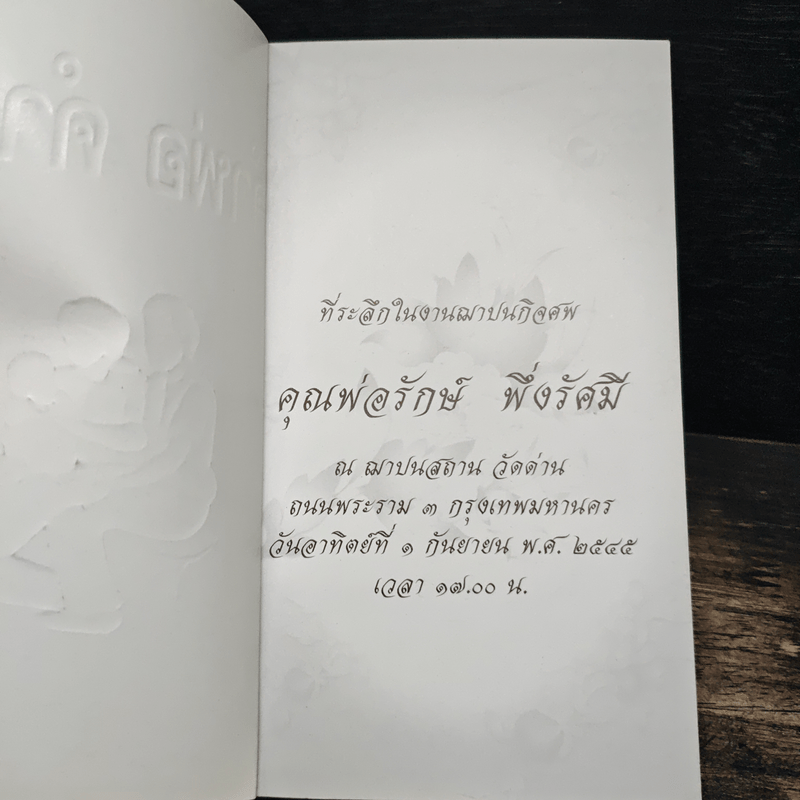 ที่ระลึกในงานฌาปนกิจศพ
คุณพ่อรักษ์ พึ่งรัศมี
ณ ฌาปนสถาน วัดด่าน
ถนนพระราม ๓ กรุงเทพมหานคร
วันอาทิตย์ที่ ๑ กันยายน พ.ศ. ๒๕๔๕
เวลา ๑๗.๐๐ น.